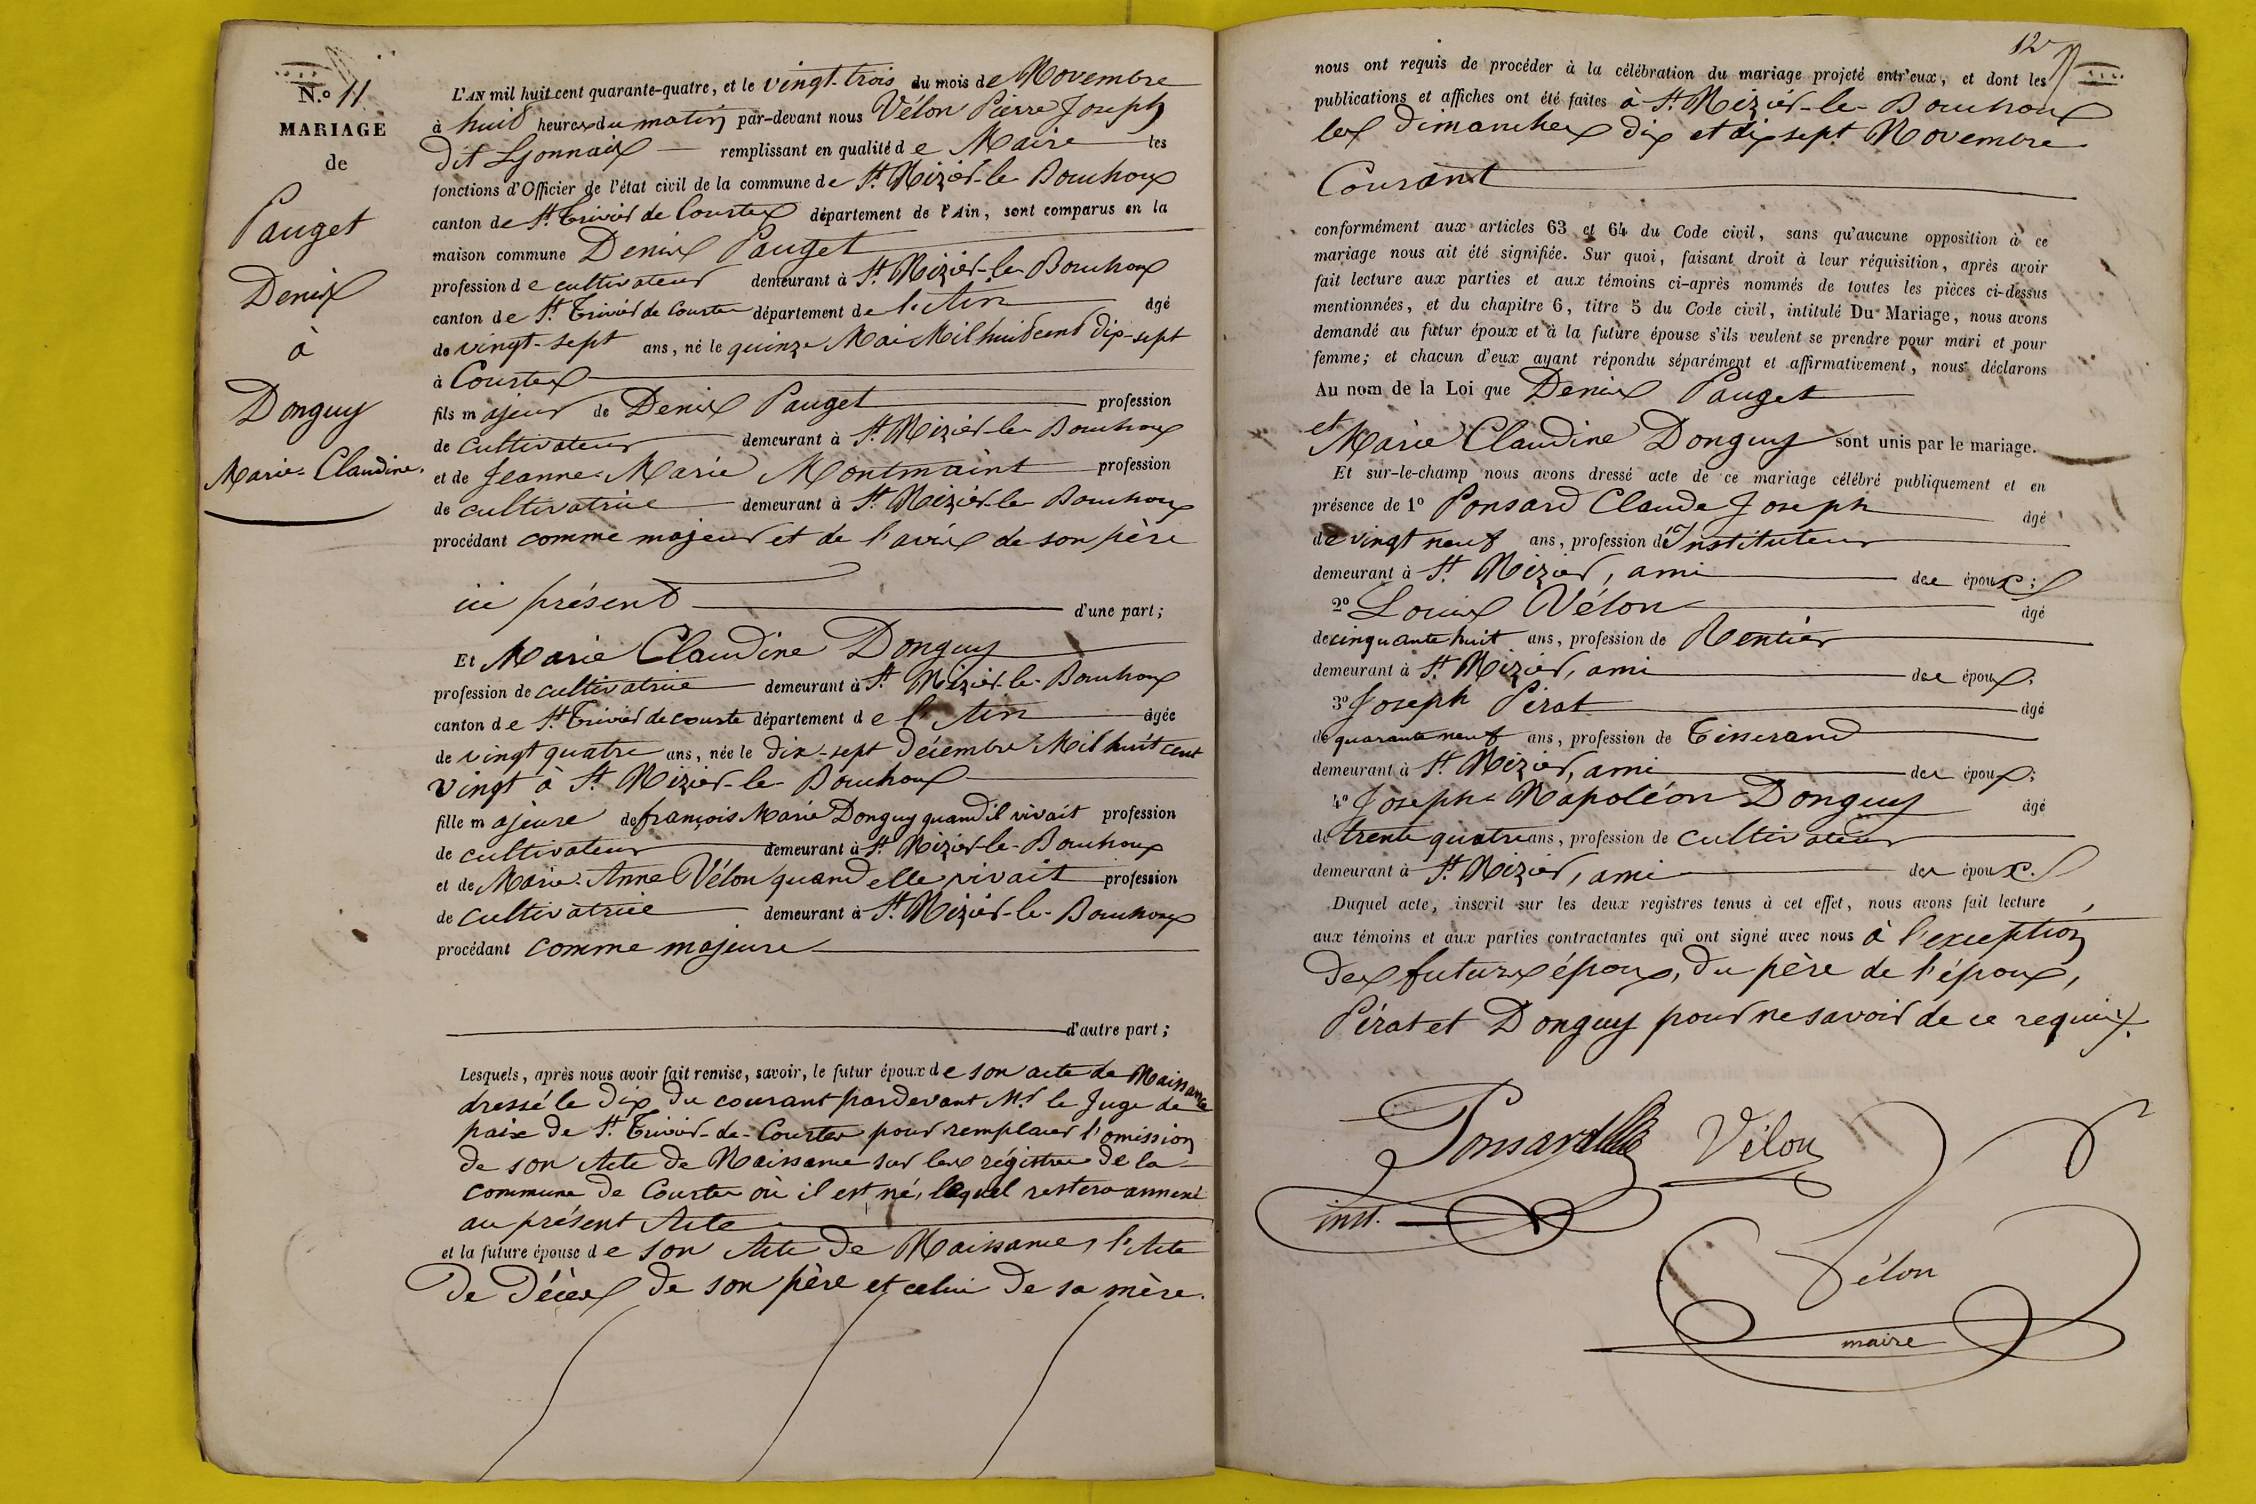 N.º 11
MARIAGE
de
Pauget
Denis
à
Donguy
Marie-Claudine.
L'AN mil huit cent quarante-quatre, et le vingt-trois du mois de Novembre
à huit heures du matin par-devant nous Vélon Pierre Joseph
dit Lyonnais remplissant en qualité de Maire les
fonctions d'Officier de l'état civil de la commune de St Nizier-le-Bouchoux
canton de St Trivier de Courtes département de l'Ain, sont comparus en la
maison commune Denis Pauget
profession de cultivateur demeurant à St Nizier-le-Bouchoux
canton de St Trivier de Courtes département de l'Ain âgé
de vingt-sept ans, né le quinze Mai Mil huit cent dix-sept
à Courtes
fils majeur de Denis Pauget profession
de cultivateur demeurant à St Nizier-le-Bouchoux
et de Jeanne-Marie Montmaint profession
de cultivatrice demeurant à St Nizier-le-Bouchoux
procédant comme majeur et de l'avis de son père
ici présent d'une part;
Et Marie Claudine Donguy
profession de cultivatrice demeurant à St Nizier-le-Bouchoux
canton de St Trivier de courte département de l'Ain âgée
de vingt quatre ans, née le dix-sept décembre Mil huit cent
vingt à St Nizier-le-Bouchoux
fille majeure de françois Marie Donguy quand il vivait profession
de cultivateur demeurant à St Nizier-le-Bouchoux
et de Marie-Anne Vélon quand elle vivait profession
de cultivatrice demeurant à St Nizier-le-Bouchoux
procédant comme majeure
d'autre part;
Lesquels, après nous avoir fait remise, savoir, le futur époux de son acte de Naissance
dressé le dix du courant pardevant Mr le Juge de
paix de St Trivier-de-Courtes pour remplacer l'omission
de son Acte de Naissance sur les régistres de la
commune de Courtes où il est né, lequel restera annexé
au présent Acte
et la future épouse de son Acte de Naissance, l'Acte
de Décès de son père et celui de sa mère.
12
nous ont requis de procéder à la célébration du mariage projeté entr'eux, et dont les
publications et affiches ont été faites à St Nizier-le-Bouchoux
les dimanches dix et dix sept Novembre
Courant
conformément aux articles 63 et 64 du Code civil, sans qu'aucune opposition à ce
mariage nous ait été signifiée. Sur quoi, faisant droit à leur réquisition, après avoir
fait lecture aux parties et aux témoins ci-après nommés de toutes les pièces ci-dessus
mentionnées, et du chapitre 6, titre 5 du Code civil, intitulé Du Mariage, nous avons
demandé au futur époux et à la future épouse s'ils veulent se prendre pour mari et pour
femme; et chacun d'eux ayant répondu séparément et affirmativement, nous déclarons
Au nom de la Loi que Denis Pauget
et
Marie Claudine Donguy sont unis par le mariage.
Et sur-le-champ nous avons dressé acte de ce mariage célébré publiquement et en
présence de 1º Ponsard Claude Joseph âgé
de vingt neuf ans, profession d'Instituteur
demeurant à St Nizier, ami des époux;
2º Louis Vélon âgé
de cinquante huit ans, profession de Rentier
demeurant à St Nizier, ami des époux;
3º Joseph Pérat âgé
de quarante neuf ans, profession de Tisserand
demeurant à St Nizier, ami des époux;
4º Joseph-Napoléon Donguy âgé
de trente quatre ans, profession de cultivateur
demeurant à St Nizier, ami des époux.
Duquel acte, inscrit sur les deux registres tenus à cet effet, nous avons fait lecture
aux témoins et aux parties contractantes qui ont signé avec nous à l'exception
des futurs époux, du père de l'époux,
Pérat et Donguy pour ne savoir de ce requis.
Ponsard Vélon
inst.
Vélon
maire